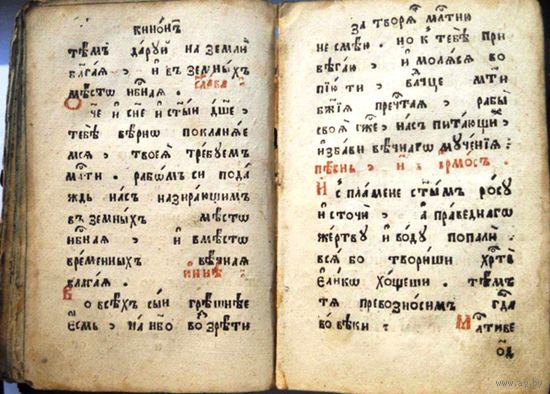 тѣмъ дарꙋй на земли
бл҃гаѧ, и въ земныхъ
мѣстѡ нб҃наѧ. Слава
Ѻч҃е и сн҃е и ст҃ый дш҃е,
тебѣ вѣрнѡ покланѧе
мсѧ, твоеѧ требꙋемъ
мл҃ти. рабѡмъ си пода
ждь насъ назирающимъ
въ земныхъ мѣстѡ
нб҃наѧ, и вмѣстѡ
временныхъ вѣчнаѧ
благаѧ. И нн҃ѣ
Ѻ всѣхъ сый грѣшнѣе
є҆смь, на нб҃о возрѣти
за творѧ мл҃тию
не смѣю. но к тебѣ при
бѣгаю, и молѧсѧ во
пїю ти, влч҃це мт҃и
бж҃їѧ пречⷭ҇таѧ, рабы
своѧ гж҃е, насъ питающи,
избави вѣчнагѡ мꙋченїѧ:
пѣснь, и҃. їрмосъ.
И с пламене ст҃ымъ росꙋ
источи, а праведнагѡ
жертвꙋ и водꙋ попали.
всѧ бо твориши хрⷭ҇те
єликѡ хощеши. тѣмъ
тѧ превозносим гдⷭ҇а
во вѣки. Мл҃тиве
www.ay.by